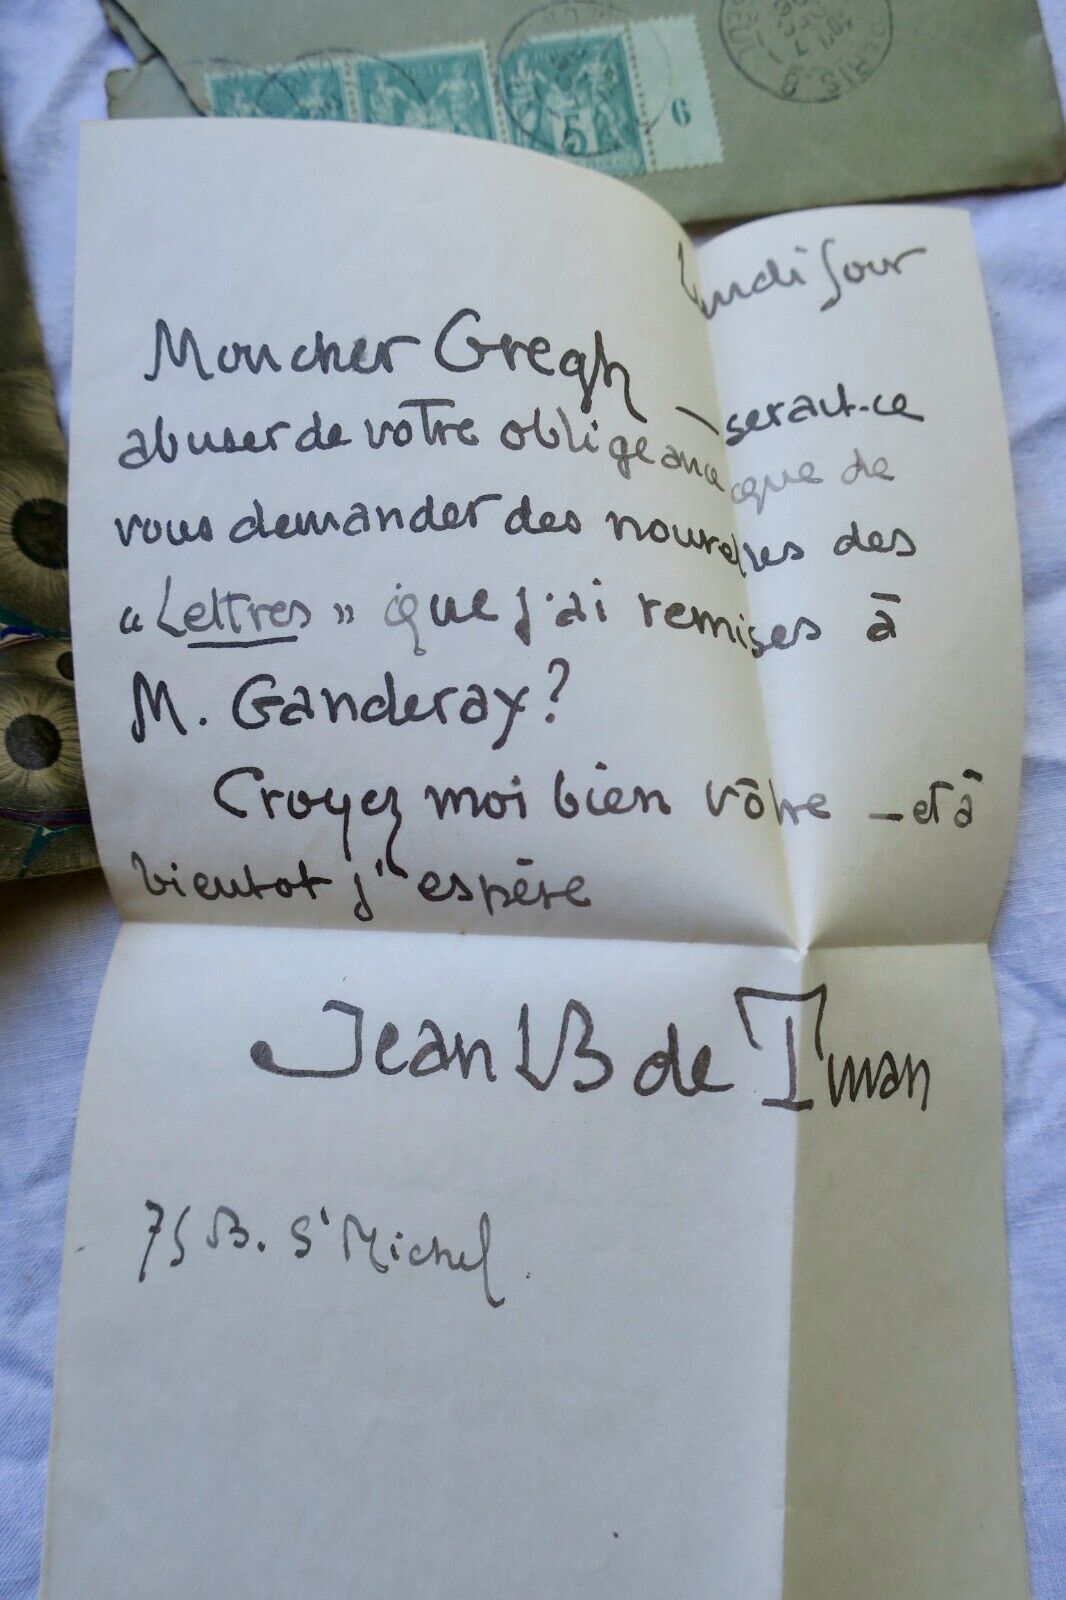 5
6
PARIS
Lundi Soir
Mon cher Gregh
— serait-ce
abuser de votre obligeance que de
vous demander des nouvelles des
« Lettres » que j'ai remises à
M. Ganderax?
Croyez moi bien vôtre — et à
bientot j'espère
Jean B de T
75 B. St Michel.